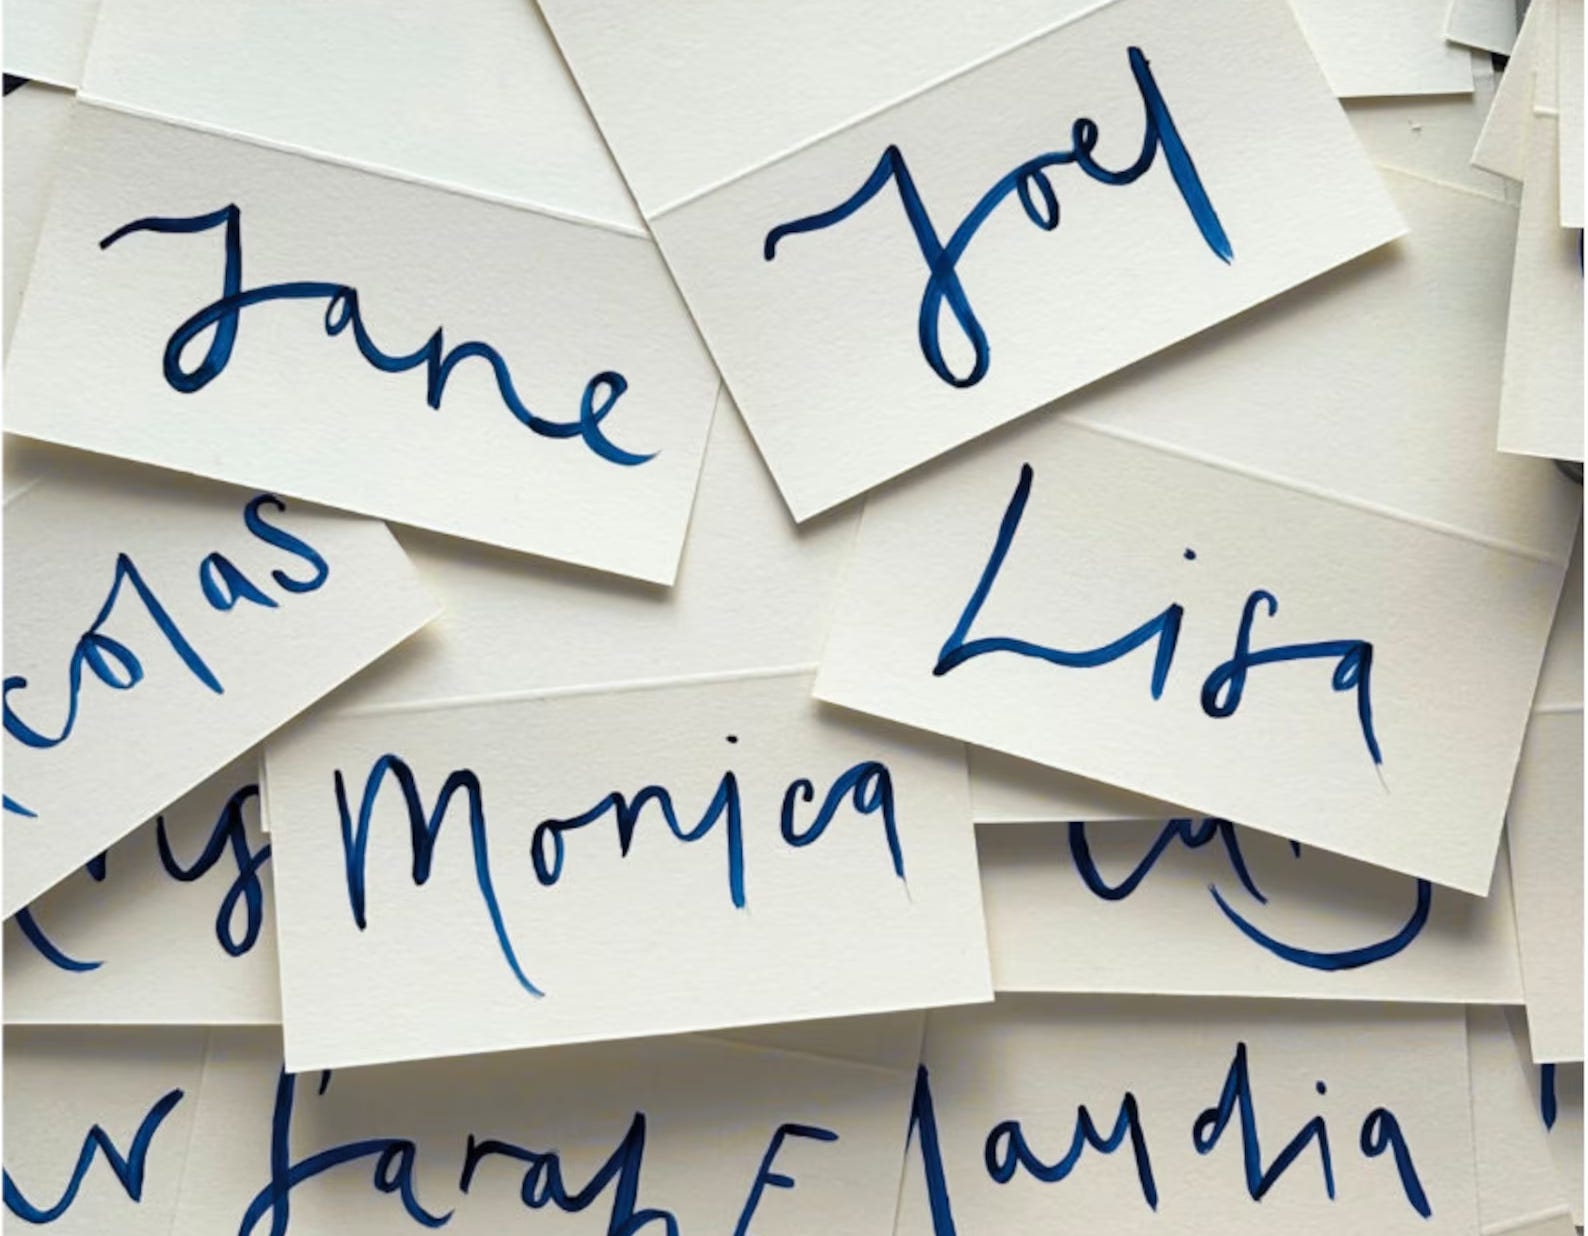 Jane
Joel
colas
Lisa
Monica
Sarah
F
laudia